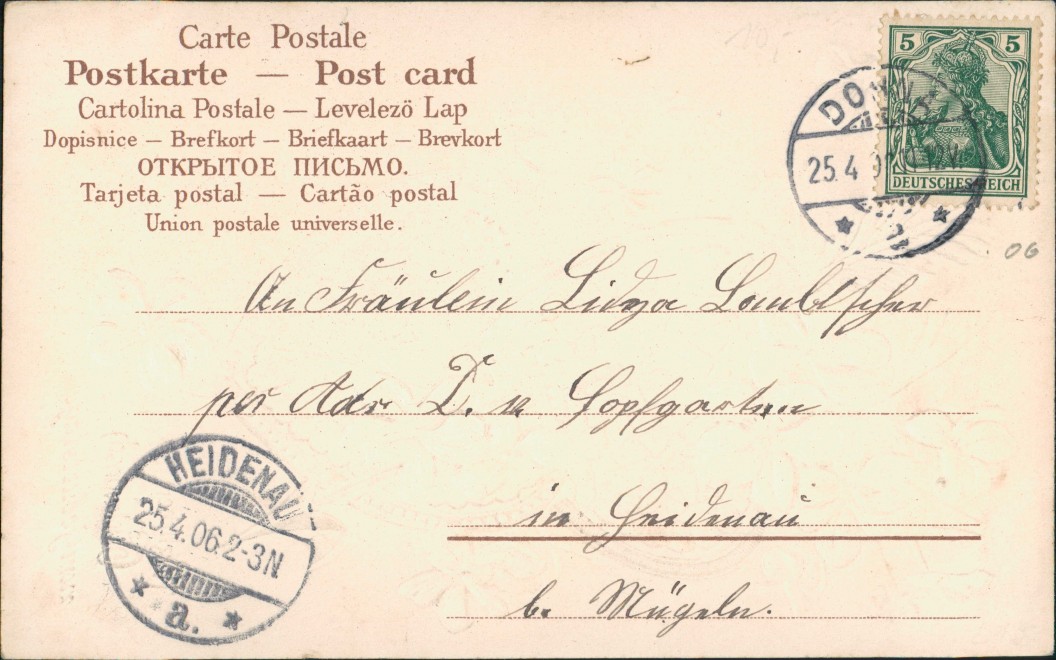 Carte Postale
Postkarte — Post card
Cartolina Postale — Levelezö Lap
Dopisnice — Brefkort — Briefkaart — Brevkort
ОТКРЫТОЕ ПИСЬМО.
Tarjeta postal — Cartão postal
Union postale universelle.
5 5
DEUTSCHES REICH
DO
25.4
06
An Fräulein
per Adr. D. v.
in Heidenau
b. Mügeln.
HEIDENAU
25.4.06.2-3N
* a. *